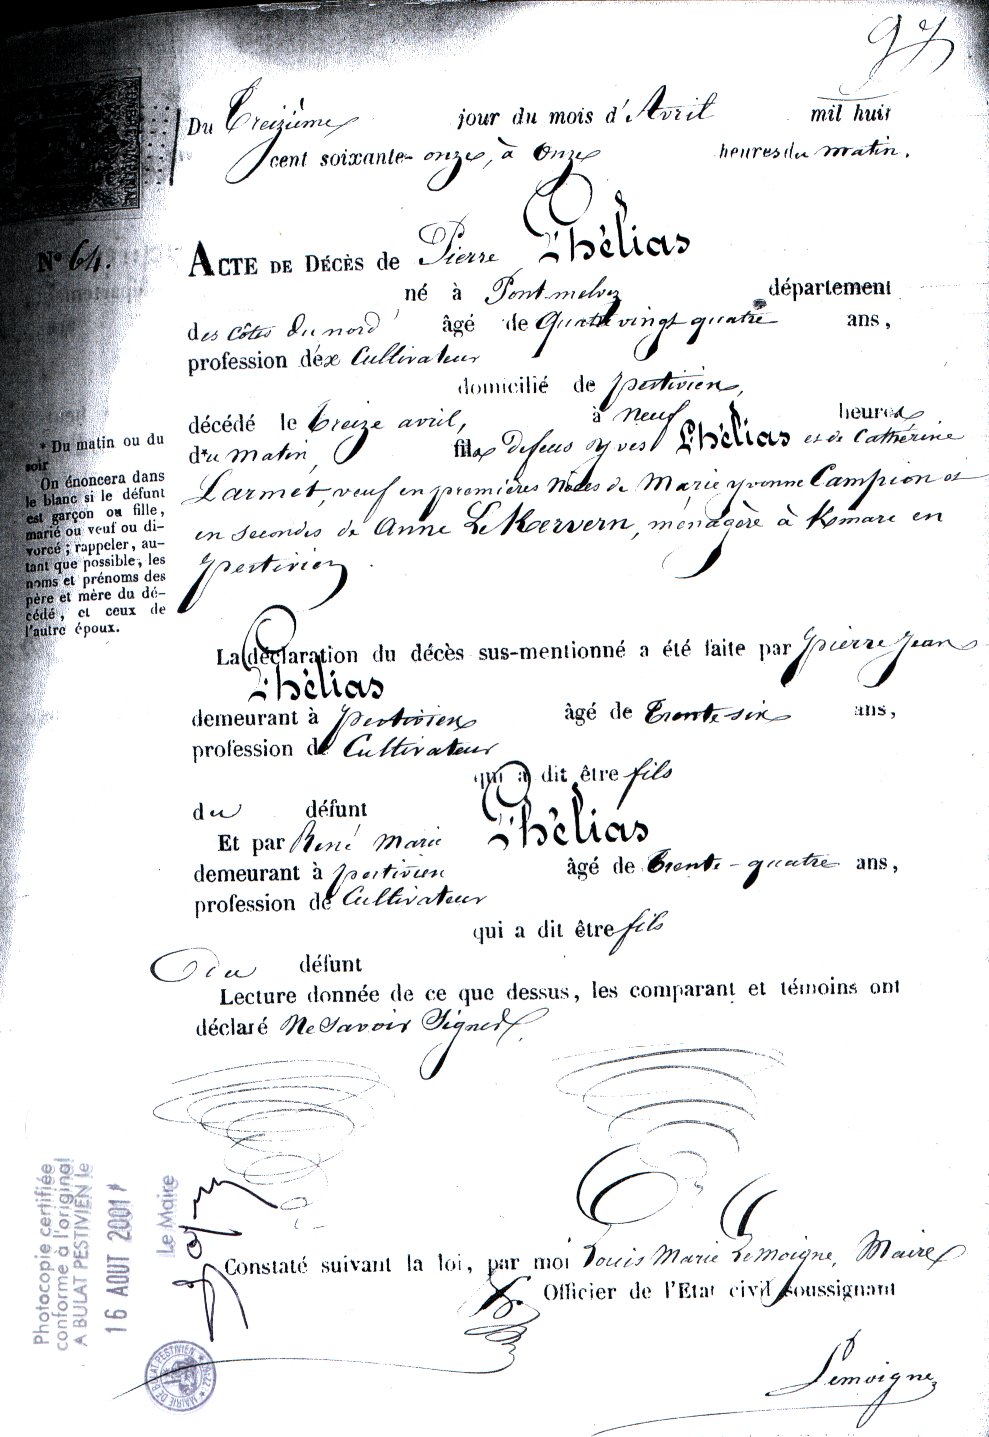 97
Du Treizième jour du mois d'Avril mil huit
cent soixante-onze, à Onze heures du matin.
N° 64.
ACTE DE DÉCÈS de Pierre Lhélias
né à Pont-melvez département
des côtes du nord âgé de Quatre vingt quatre ans,
profession d'ex Cultivateur
domicilié de pestivien,
décédé le treize avril, à neuf heures
du matin, fils defeus Yves Lhélias et de Cathérine
Larmet, veuf en premières Noces de Marie yvonne Campion et
en secondes de Anne Le Kervern, ménagère à Kmarc en
pestivien.
* Du matin ou du
soir
On énoncera dans
le blanc si le défunt
est garçon ou fille,
marié ou veuf ou di-
vorcé; rappeler, au-
tant que possible, les
noms et prénoms des
père et mère du dé-
cédé, et ceux de
l'autre époux.
La déclaration du décès sus-mentionné a été faite par pierre Jean
Lhélias
demeurant à pestivien âgé de trente-six ans,
profession de Cultivateur
qui a dit être fils
du défunt
Et par René Marie Lhélias
demeurant à pestivien âgé de trente-quatre ans,
profession de Cultivateur
qui a dit être fils
du défunt
Lecture donnée de ce que dessus, les comparant et témoins ont
déclaré Ne Savoir Signer.
Constaté suivant la loi, par moi Louis Marie Lemoigne, Maire
Officier de l'Etat civil soussignant
Lemoigne
Photocopie certifiée
conforme à l'original
A BULAT PESTIVIEN le
16 AOUT 2001
Le Maire
MAIRIE DE BULAT PESTIVIEN